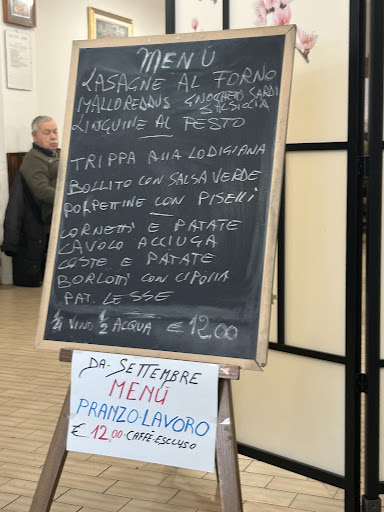 MENÙ
LASAGNE AL FORNO
MALLOREDDUS GNOCHETTI SARDI
SALSICCIA
LINGUINE AL PESTO
TRIPPA ALLA LODIGIANA
BOLLITO CON SALSA VERDE
POLPETTINE CON PISELLI
CORNETTI E PATATE
CAVOLO ACCIUGA
COSTE E PATATE
BORLOTTI CON CIPOLLA
PAT. LESSE
1/4 VINO 1/2 ACQUA € 12,00
DA SETTEMBRE
MENÙ
PRANZO-LAVORO
€ 12,00-CAFFÈ-ESCLUSO